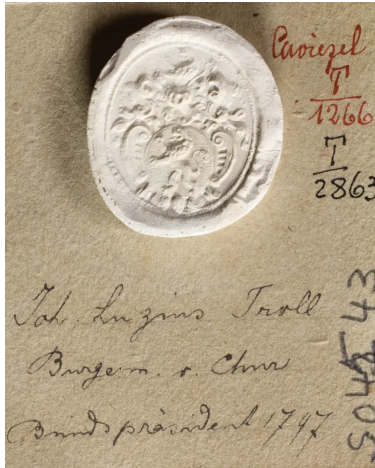 Caviezel
T
1266
T
2863
Joh. Luzius Troll
Burgem. v. Chur
Bundspräsident 1797